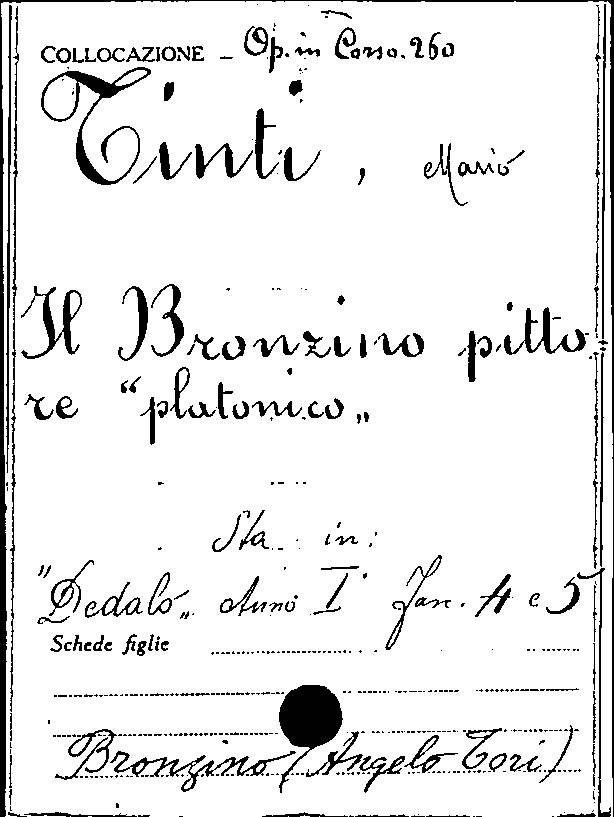 COLLOCAZIONE - Op. in Corso. 260
Tinti, Mario
Il Bronzino pitto
re "platonico„
Sta in:
"Dedalo„ Anno I° Fasc. 4 e 5
Schede figlie
Bronzino (Angelo Tori)